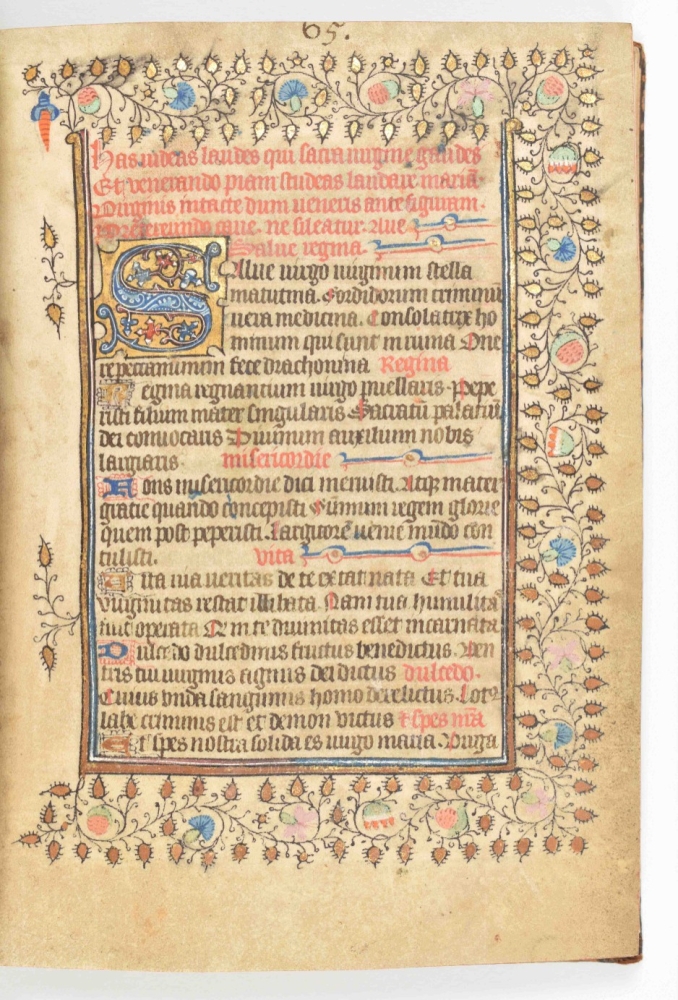 65.
Has uideas laudes qui sacra uirgine gaudes
Et venerando piam studeas laudare mariã
Virginis intacte dum ueneris ante figuram.
Pretereundo caue. ne sileatur. Aue
Salue regina
Salue uirgo uirginum stella
matutina. Sordidorum criminũ
uera medicina. Consolatrix ho
minum qui sunt in ruina One
te peccaminum fece drachonina Regina
Regina regnantium uirgo puellaris. Pepe
risti filium mater singularis Sacratũ palatiũ
dei conuocaris Diuinum auxilium nobis
largiaris. misericordie
Fons misericordie dici meruisti. Atq; mater
gratie quando concepisti Sũmum regem glorie
quem post peperisti. Largitorẽ uenie mũdo con
tulisti. vita
Uita uia ueritas de te extat nata Et tua
virginitas restat illibata. Nam tua humilitas
fuit operata Qr in te diuinitas esset incarnata
Dulcedo dulcedinis fructus benedictus. Ven
tris tui uirginis agnus dei dictus dulcedo.
Cuius vnda sanguinis homo derelictus. Lotꝰ
labe criminis est et demon victus & spes nr̃a
Et spes nostra solida es uirgo maria. Virga